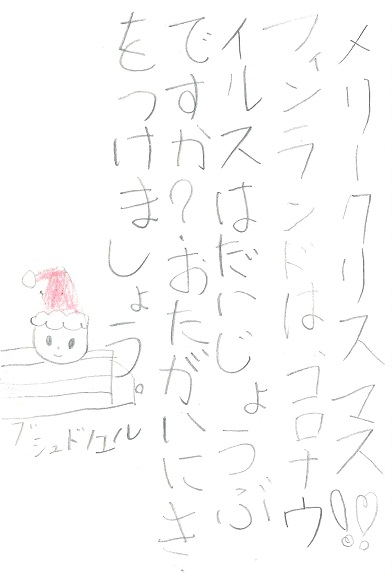 メリークリスマス!!
フィンランドは、コロナウ
イルスはだいじょうぶ
ですか?おたがいにき
をつけましょう。
ブシュドノエル